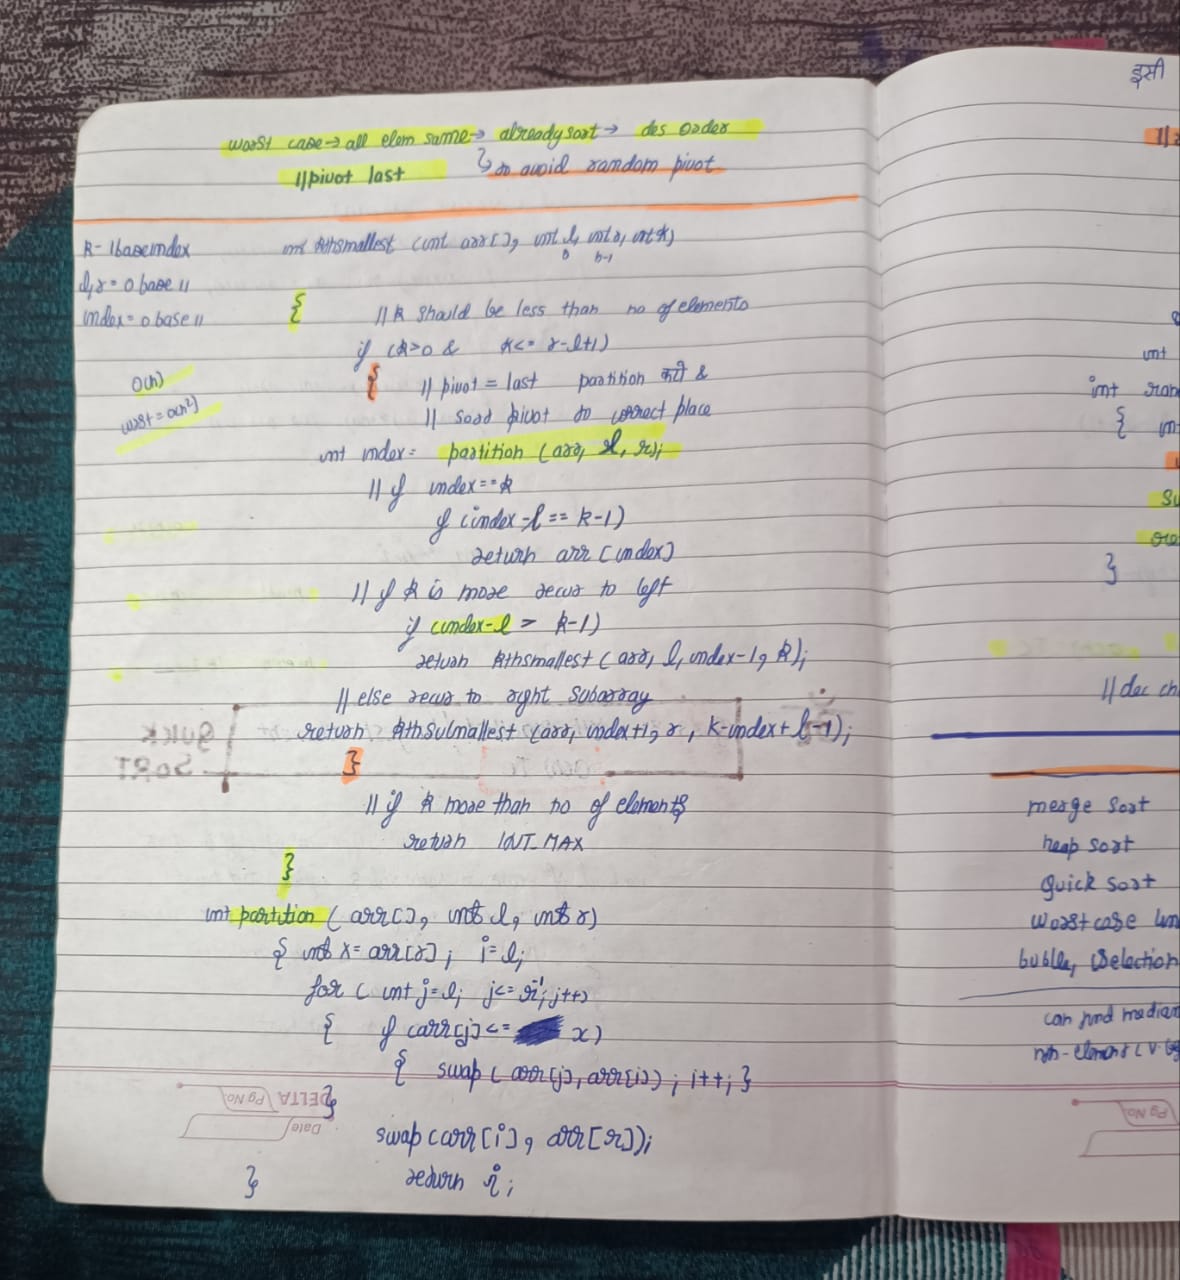 worst case→ all elem same→ already sort→ des order
//pivot last
↳ to avoid random pivot
K - 1base index
l,r = 0 base //
index = 0 base //
O(n)
worst = O(n²)
int kthsmallest (int arr[], int l, int r, int k)
0 n-1
{ // k should be less than no of elements
if (k>0 & k<= r-l+1)
{ // pivot = last partition करो &
// pivot to correct place
int index = partition (arr, l, r);
// if index == k
if (index-l == k-1)
return arr[index]
// if k is more recur to left
if (index-l > k-1)
return kthsmallest (arr, l, index-1, k);
// else recur to right subarray
return (arr, index+1, r, k-index+l-1);
}
// if k more than no of elements
return INT_MAX
}
int partition ( arr[], int l, int r)
{ int x = arr[r]; i=l;
for ( int j=l; j<= r-1; j++)
{ if (arr[j] <= x)
{ swap ( arr[j], arr[i]) ; i++; }
}
swap (arr[i], arr[r]);
return i;
}
QUICK
SORT
DELTA Pg No.
Date
इसी
int
int
{
}
// dec
merge sort
heap sort
quick sort
worst case
bubble, selection
can find
Pg No.